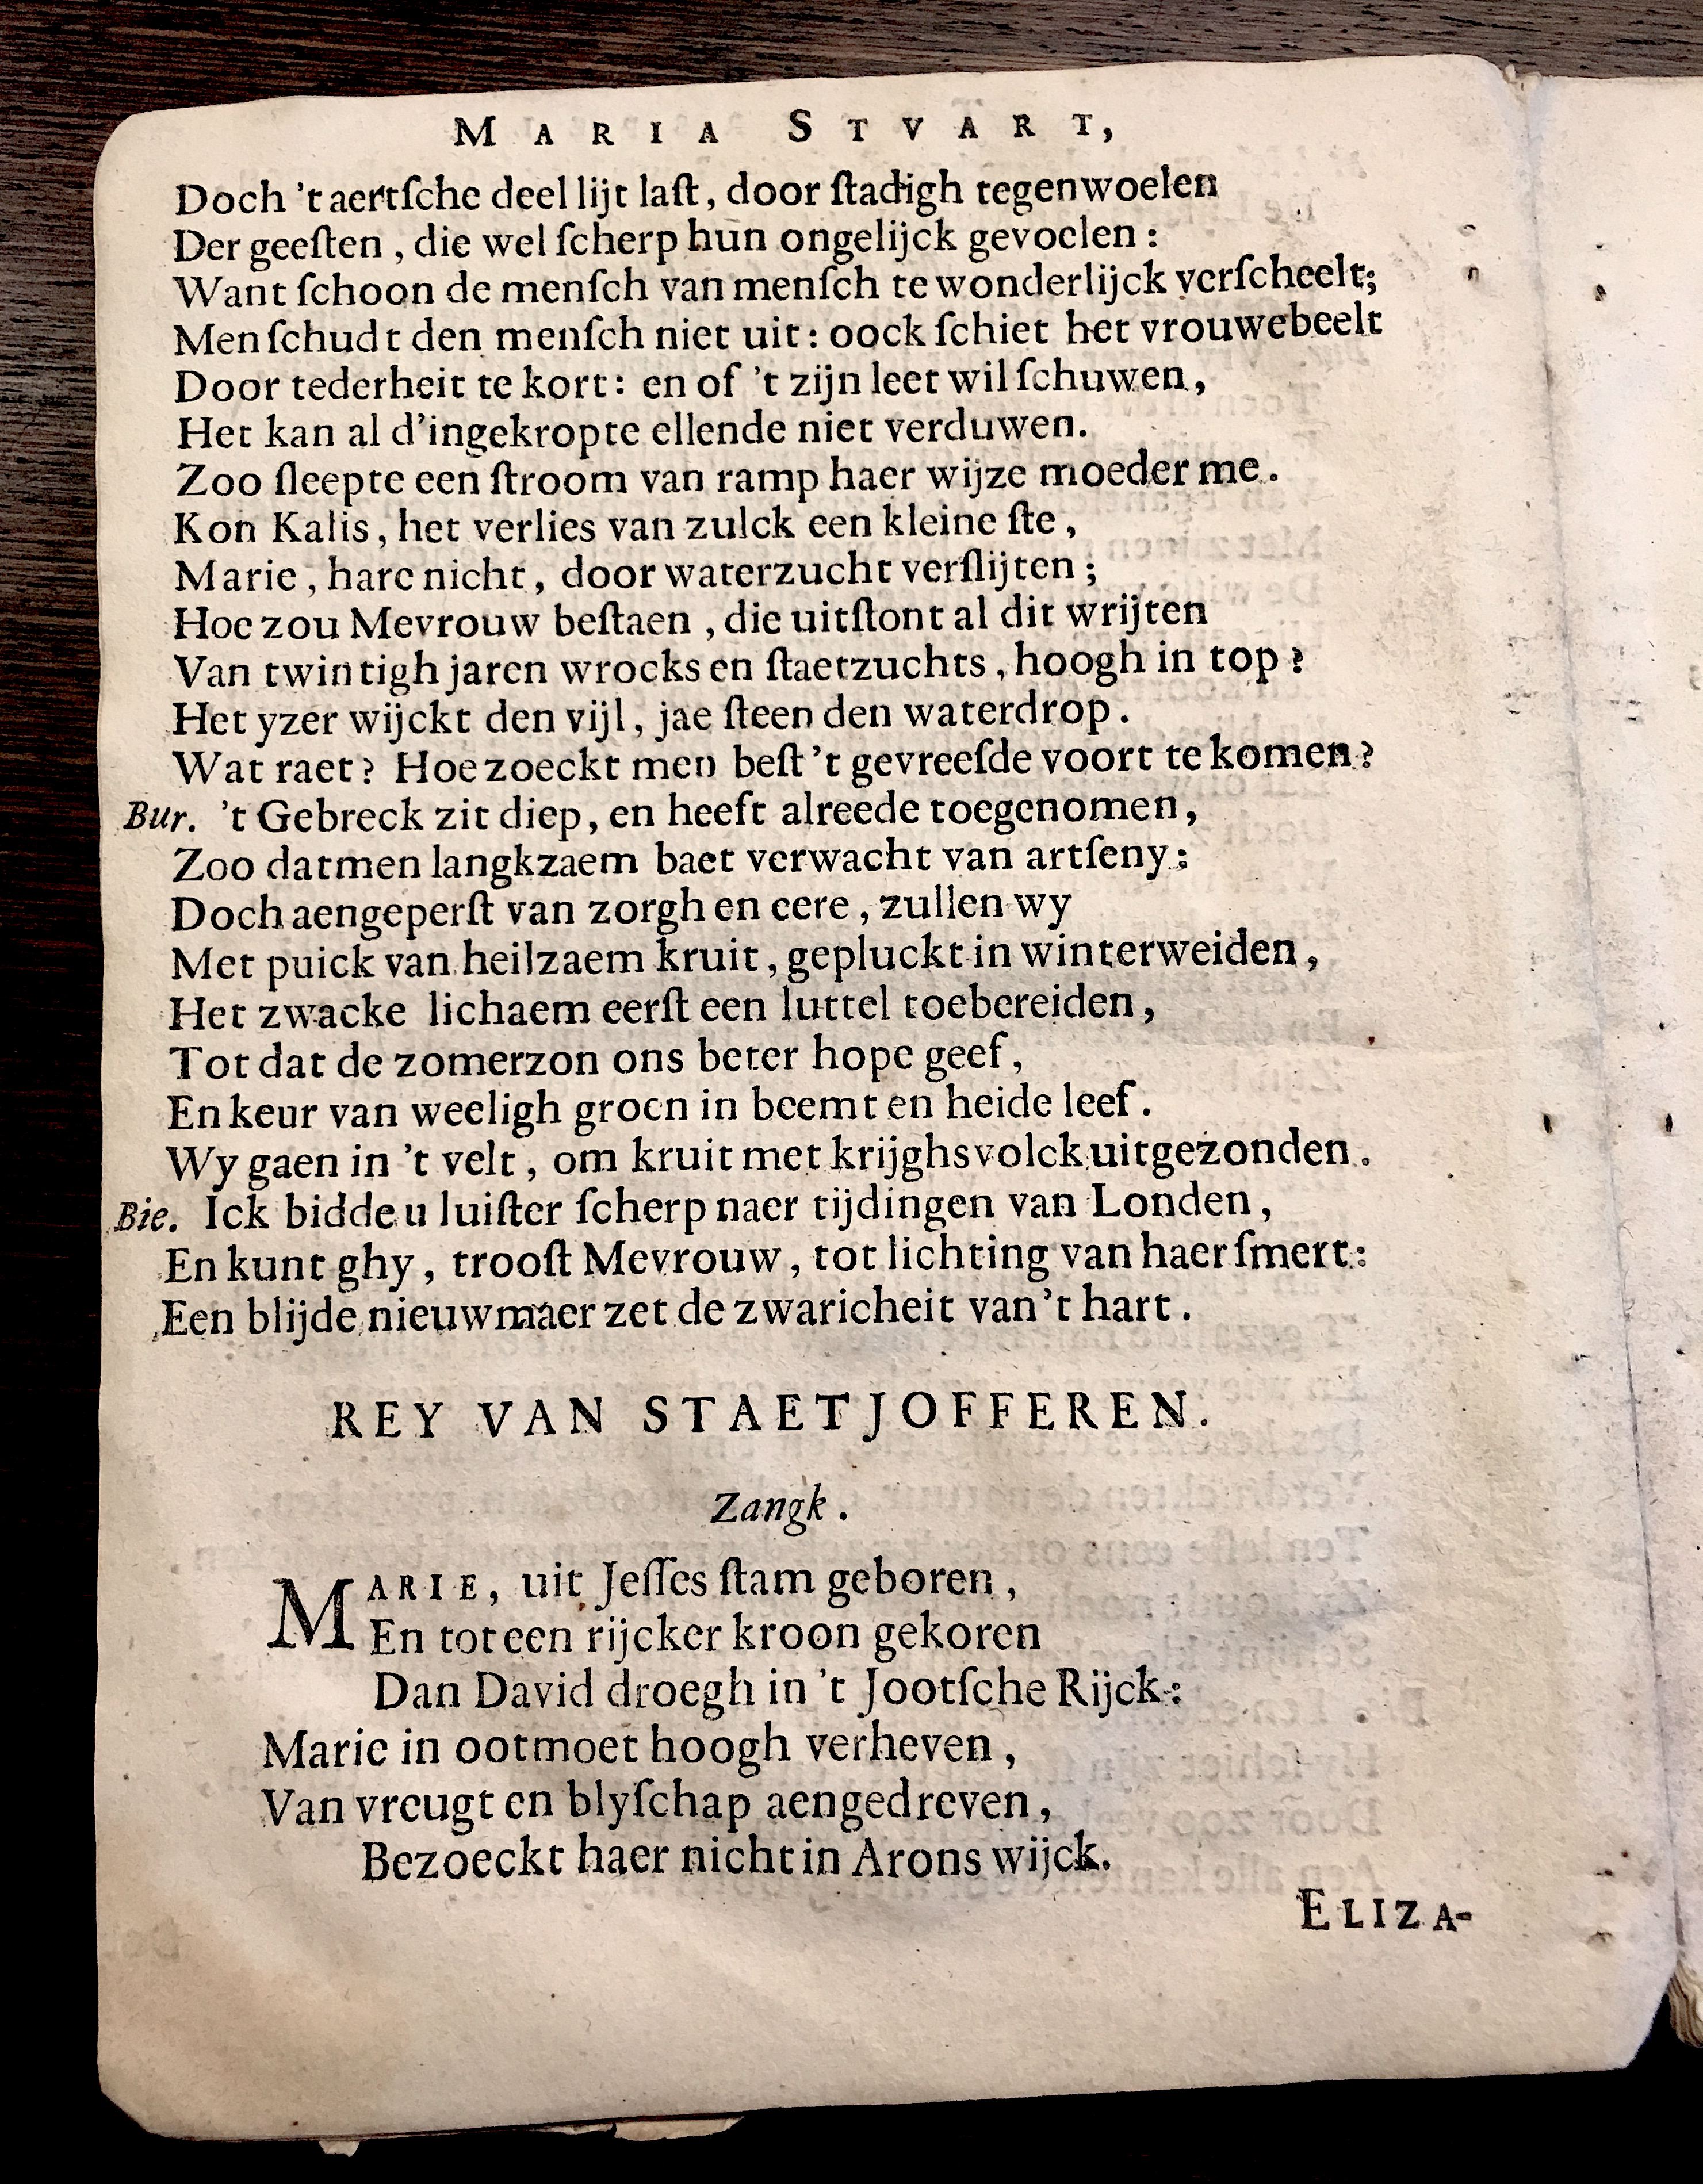 MARIA STVART,
Doch 't aertſche deel lijt laſt, door ſtadigh tegenwoelen
Der geeſten, die wel ſcherp hun ongelijck gevoelen:
Want ſchoon de menſch van menſch te wonderlijck verſcheelt;
Men ſchudt den menſch niet uit: oock ſchiet het vrouwebeelt
Door tederheit te kort: en of 't zijn leet wil ſchuwen,
Het kan al d'ingekropte ellende niet verduwen.
Zoo ſleepte een ſtroom van ramp haer wijze moeder me.
Kon Kalis, het verlies van zulck een kleine ſte,
Marie, hare nicht, door waterzucht verſlijten;
Hoe zou Mevrouw beſtaen, die uitſtont al dit wrijten
Van twintigh jaren wrocks en ſtaetzuchts, hoogh in top?
Het yzer wijckt den vijl, jae ſteen den waterdrop.
Wat raet? Hoe zoeckt men beſt 't gevreeſde voort te komen?
Bur. 't Gebreck zit diep, en heeft alreede toegenomen,
Zoo datmen langkzaem baet verwacht van artſeny:
Doch aengeperſt van zorgh en eere, zullen wy
Met puick van heilzaem kruit, gepluckt in winterweiden,
Het zwacke lichaem eerſt een luttel toebereiden,
Tot dat de zomerzon ons beter hope geef,
En keur van weeligh groen in beemt en heide leef.
Wy gaen in 't velt, om kruit met krijghsvolck uitgezonden.
Bie. Ick bidde u luiſter ſcherp naer tijdingen van Londen,
En kunt ghy, trooſt Mevrouw, tot lichting van haer ſmert:
Een blijde nieuwmaer zet de zwaricheit van 't hart.
REY VAN STAETJOFFEREN.
Zangk.
MARIE, uit Jeſſes ſtam geboren,
En tot een rijcker kroon gekoren
Dan David droegh in 't Jootſche Rijck:
Marie in ootmoet hoogh verheven,
Van vreugt en blyſchap aengedreven,
Bezoeckt haer nicht in Arons wijck.
ELIZA-